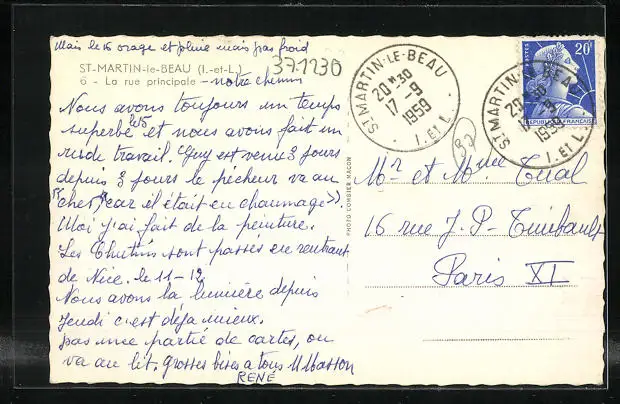 Mais le 16 orage et pluie mais pas froid
371230
ST-MARTIN-le-BEAU (I.-et-L.)
6 - La rue principale - notre chemin
Nous avons toujours un temps
superbe et nous avons fait un
rude travail. Guy est venu 3 jours
depuis 3 jours le pêcheur va au
cher (car il était en chaumage)
Moi j'ai fait de la peinture.
Les sont passés en rentrant
de Nice. le 11-12
Nous avons la lumière depuis
Jeudi c'est déja mieux.
pas une partie de cartes, on
va au lit. grosses bises a tous M Masson
RENÉ
PHOTO COMBIER MACON
ST MARTIN-LE-BEAU
20 H 30
17-9
1959
I. ET L.
POSTES
20F
REPUBLIQUE FRANÇAISE
ST MARTIN-LE-BEAU
20 30
1959
I. ET L.
37
Mr et Mme
16 rue J-P-Timbault
Paris XI